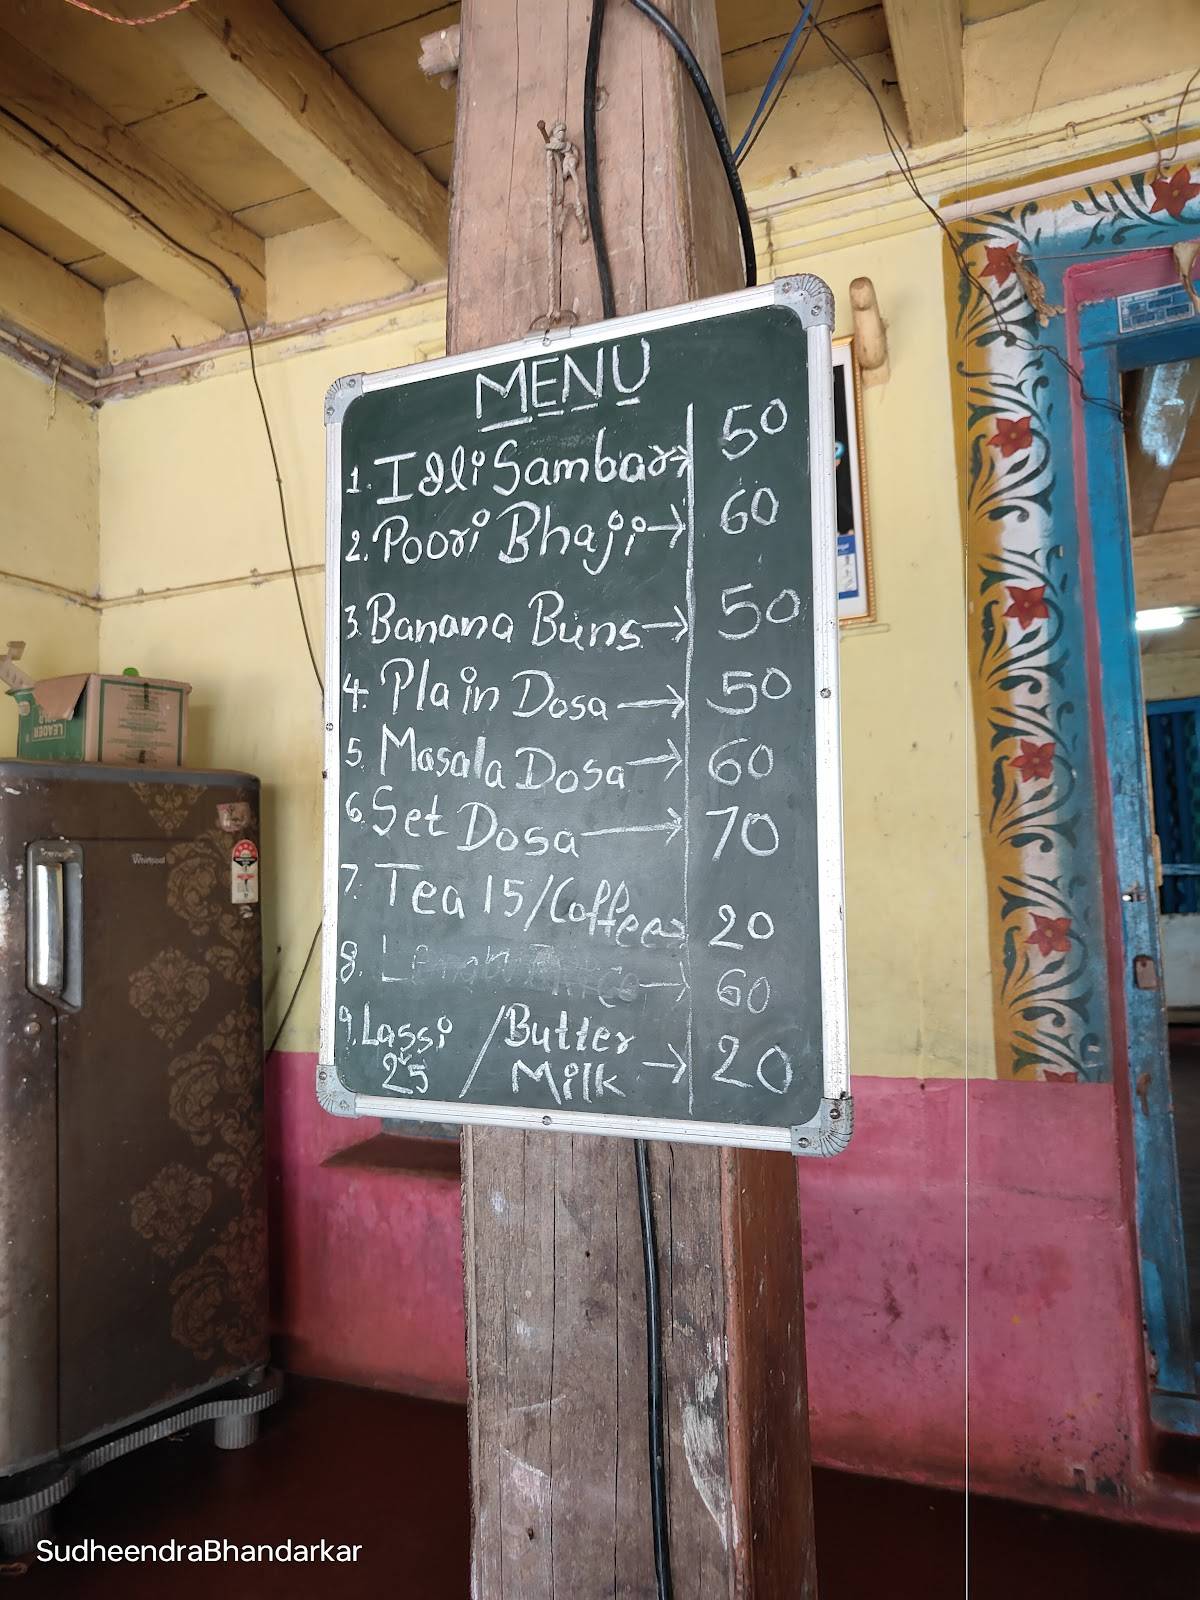 MENU
1. Idli Sambar → 50
2. Poori Bhaji → 60
3. Banana Buns → 50
4. Plain Dosa → 50
5. Masala Dosa → 60
6. Set Dosa → 70
7. Tea 15/Coffee → 20
8. → 60
9. Lassi 25 / Butter Milk → 20
LEADER
Whirlpool
SudheendraBhandarkar